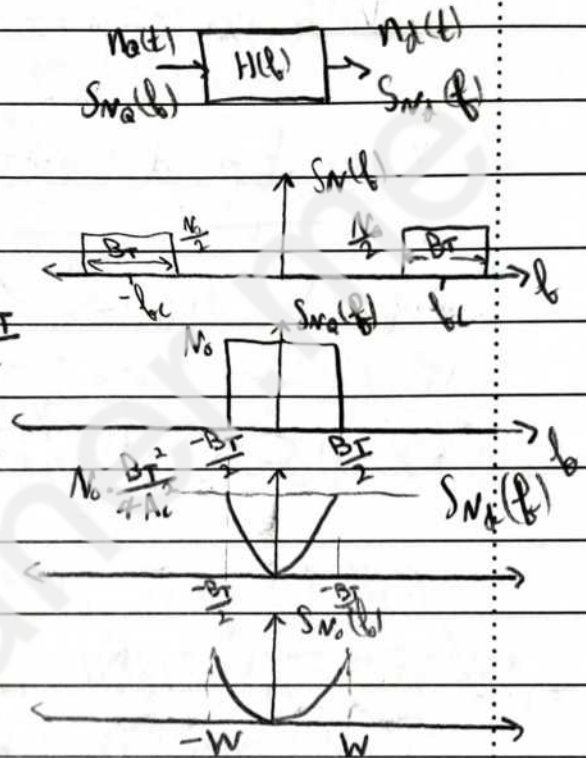 n_Q(t) H(f) n_d(t)
S_{N_Q}(f) S_{N_d}(f)
S_N(f)
B_T N_0/2 N_0/2 B_T
-f_c f_c f
S_{N_Q}(f)
N_0
-B_T/2 B_T/2 f
N_0 B_T^2/4A_c^2 S_{N_d}(f)
-B_T/2 -B_T/2
S_{N_0}(f)
-W W